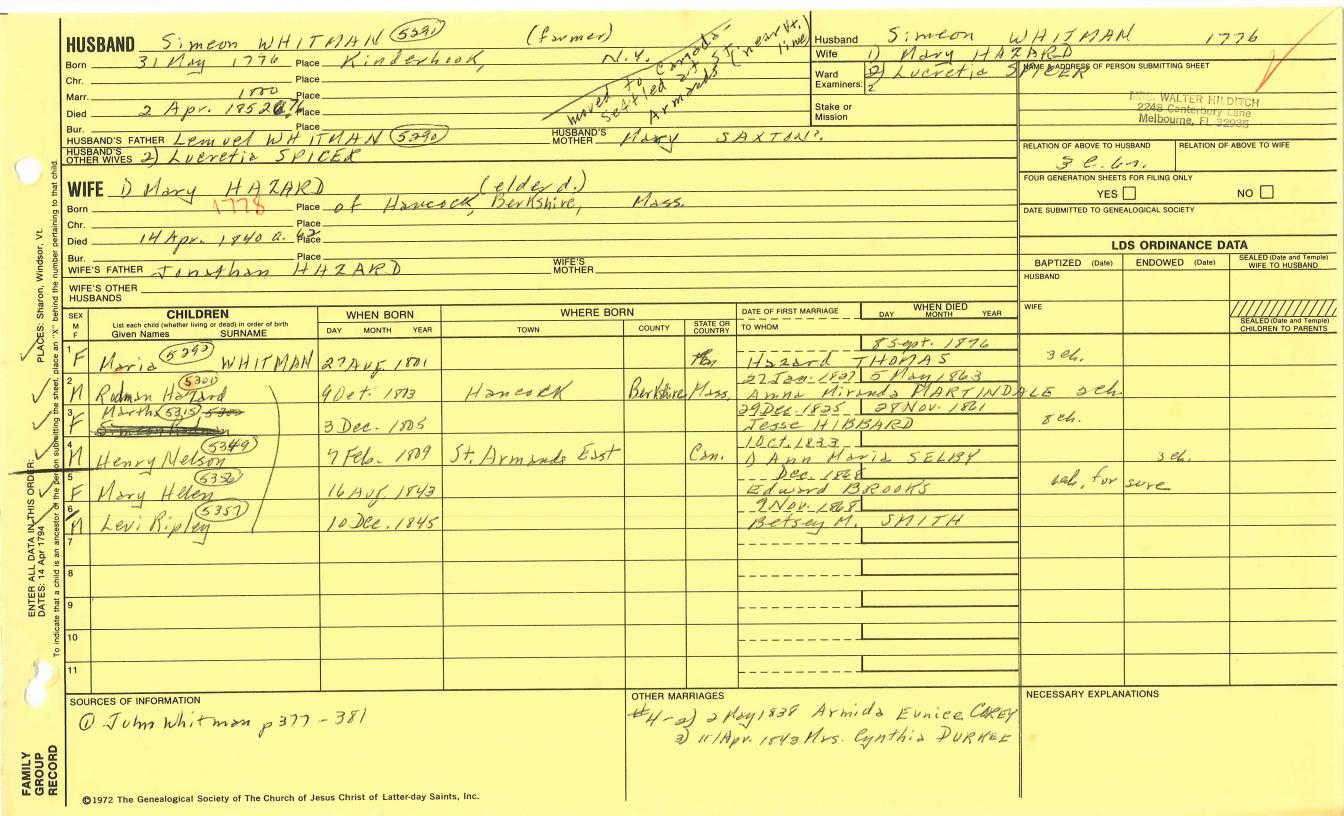 HUSBAND Simeon WHITMAN 5291 (farmer)
Born 31 May 1776 Place Kinderhook, N.Y.
Chr. Place
Marr. 1800 Place
Died 2 Apr. 1852 Place
Bur. Place
moved to Canada-
settled at St.
Armands (near Vt. line)
HUSBAND'S FATHER Lemuel WHITMAN 5290 HUSBAND'S MOTHER Mary SAXTON?
HUSBAND'S OTHER WIVES 2) Lucretia SPICER
Husband Simeon WHITMAN 1776
Wife 1) Mary HAZARD
2) Lucretia SPICER
Ward Examiners: 1 2
Stake or Mission
NAME & ADDRESS OF PERSON SUBMITTING SHEET
MRS. WALTER HILDITCH
2248 Canterbury Lane
Melbourne, FL 32935
RELATION OF ABOVE TO HUSBAND RELATION OF ABOVE TO WIFE
FOUR GENERATION SHEETS FOR FILING ONLY
YES NO
DATE SUBMITTED TO GENEALOGICAL SOCIETY
WIFE 1) Mary HAZARD (elder d.)
Born 1778 Place of Hancock, Berkshire, Mass.
Chr. Place
Died 14 Apr. 1840 a. 62 Place
Bur. Place
WIFE'S FATHER Jonathan HAZARD WIFE'S MOTHER
WIFE'S OTHER HUSBANDS
LDS ORDINANCE DATA
BAPTIZED (Date) ENDOWED (Date) SEALED (Date and Temple) WIFE TO HUSBAND
HUSBAND
WIFE
SEALED (Date and Temple) CHILDREN TO PARENTS
SEX M F CHILDREN WHEN BORN WHERE BORN DATE OF FIRST MARRIAGE WHEN DIED
List each child (whether living or dead) in order of birth
Given Names SURNAME DAY MONTH YEAR TOWN COUNTY STATE OR COUNTRY TO WHOM DAY MONTH YEAR
8 Sept. 1876
1 F Maria 5292 WHITMAN 27 Aug. 1801 Hazard THOMAS 3 ch.
27 Jan. 1827 5 May 1863
2 M Rodman Hazard 5301 9 Oct. 1803 Hancock Berkshire Mass. Anna Miranda MARTINDALE 2 ch.
29 Dec. 1825 28 Nov. 1861
3 F Martha 5315 3 Dec. 1805 Jesse HIBBARD 8 ch.
1 Oct. 1833
4 M Henry Nelson 5349 7 Feb. 1809 St. Armands East Can. 1) Ann Maria SELBY 3 ch.
Dec. 1868
5 F Mary Helen 5356 16 Aug. 1843 Edward BROOKS 6 ch. for sure
9 Nov. 1868
6 M Levi Ripley 5357 10 Dec. 1845 Betsey M. SMITH
7
8
9
10
11
SOURCES OF INFORMATION
① John Whitman p 377 - 381
OTHER MARRIAGES
#4-2) 2 May 1838 Armida Eunice COREY
3) 11 Apr. 1843 Mrs. Cynthia DURKEE
NECESSARY EXPLANATIONS
©1972 The Genealogical Society of The Church of Jesus Christ of Latter-day Saints, Inc.
FAMILY GROUP RECORD
ENTER ALL DATA IN THIS ORDER: PLACES: Sharon, Windsor, Vt.
DATES: 14 Apr 1794
To indicate that a child is an ancestor of the person submitting the sheet, place an "X" behind the number pertaining to that child.